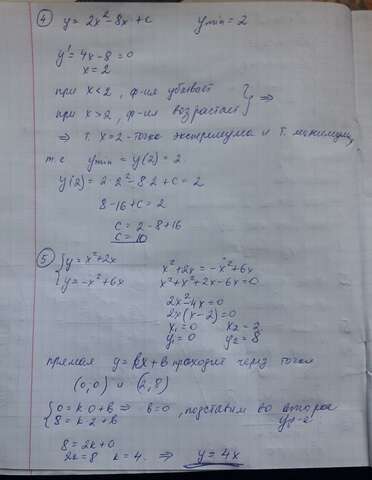 ④ y = 2x² - 8x + c   y min = 2
y' = 4x - 8 = 0
x = 2
при x < 2, ф-ия убывает
при x > 2, ф-ия возрастает } ⇒
⇒ т. x = 2 - точка экстремума и т. минимума,
т.е. y min = y(2) = 2
y(2) = 2·2² - 8·2 + c = 2
8 - 16 + c = 2
c = 2 - 8 + 16
c = 10
⑤ { y = x² + 2x   x² + 2x = -x² + 6x
{ y = -x² + 6x   x² + x² + 2x - 6x = 0
2x² - 4x = 0
2x(x - 2) = 0
x₁ = 0   x₂ = 2
y₁ = 0   y₂ = 8
прямая y = kx + b проходит через точки
(0,0) и (2,8)
{ 0 = k·0 + b ⇒ b = 0, подставим во второе
{ 8 = k·2 + b   ур-е
8 = 2k + 0
2k = 8   k = 4. ⇒ y = 4x